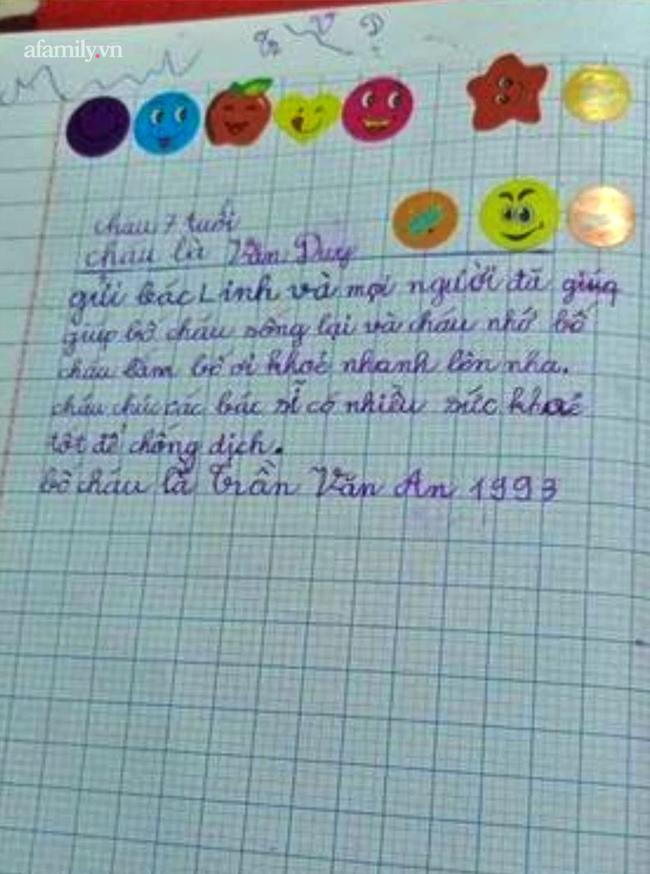 afamily.vn
cháu 7 tuổi
cháu là Văn Duy
gửi bác Linh và mọi người đã giúp
giúp bố cháu sống lại và cháu nhớ bố
cháu lắm bố ơi khoẻ nhanh lên nha.
cháu chúc các bác sĩ có nhiều sức khoẻ
tốt để chống dịch.
bố cháu là Trần Văn An 1993